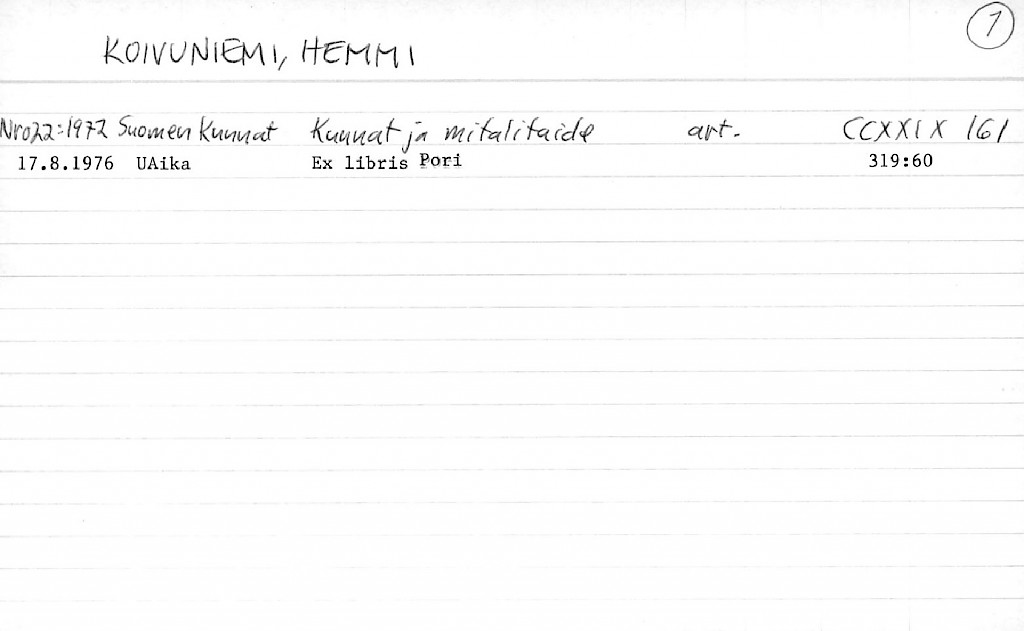 1
KOIVUNIEMI, HEMMI
Nro22:1972 Suomen Kunnat Kunnat ja mitalitaide art. CCXXIX 161
17.8.1976 UAika Ex libris Pori 319:60